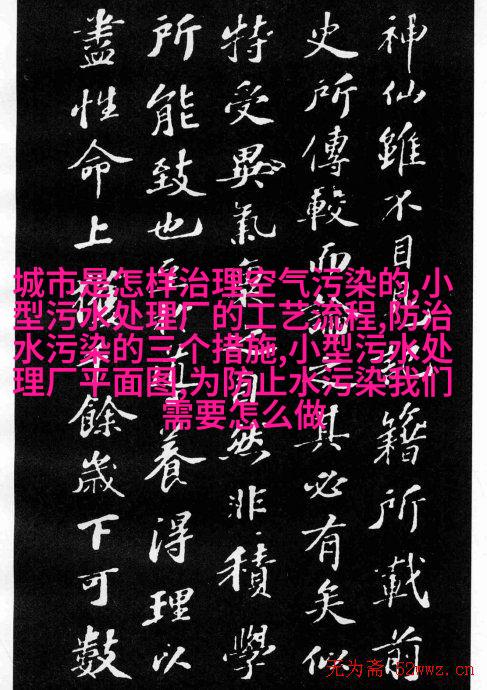 神仙雖不目籍所載前
史所傳較而論之其必有矣似
特受異氣自然非積學
所能致也養得理以
盡性命上獲餘歲下可數
城市是怎样治理空气污染的,小
型污水处理厂的工艺流程,防治
水污染的三个措施,小型污水处
理厂平面图,为防止水污染我们
需要怎么做
无为斋·52wwz.cn